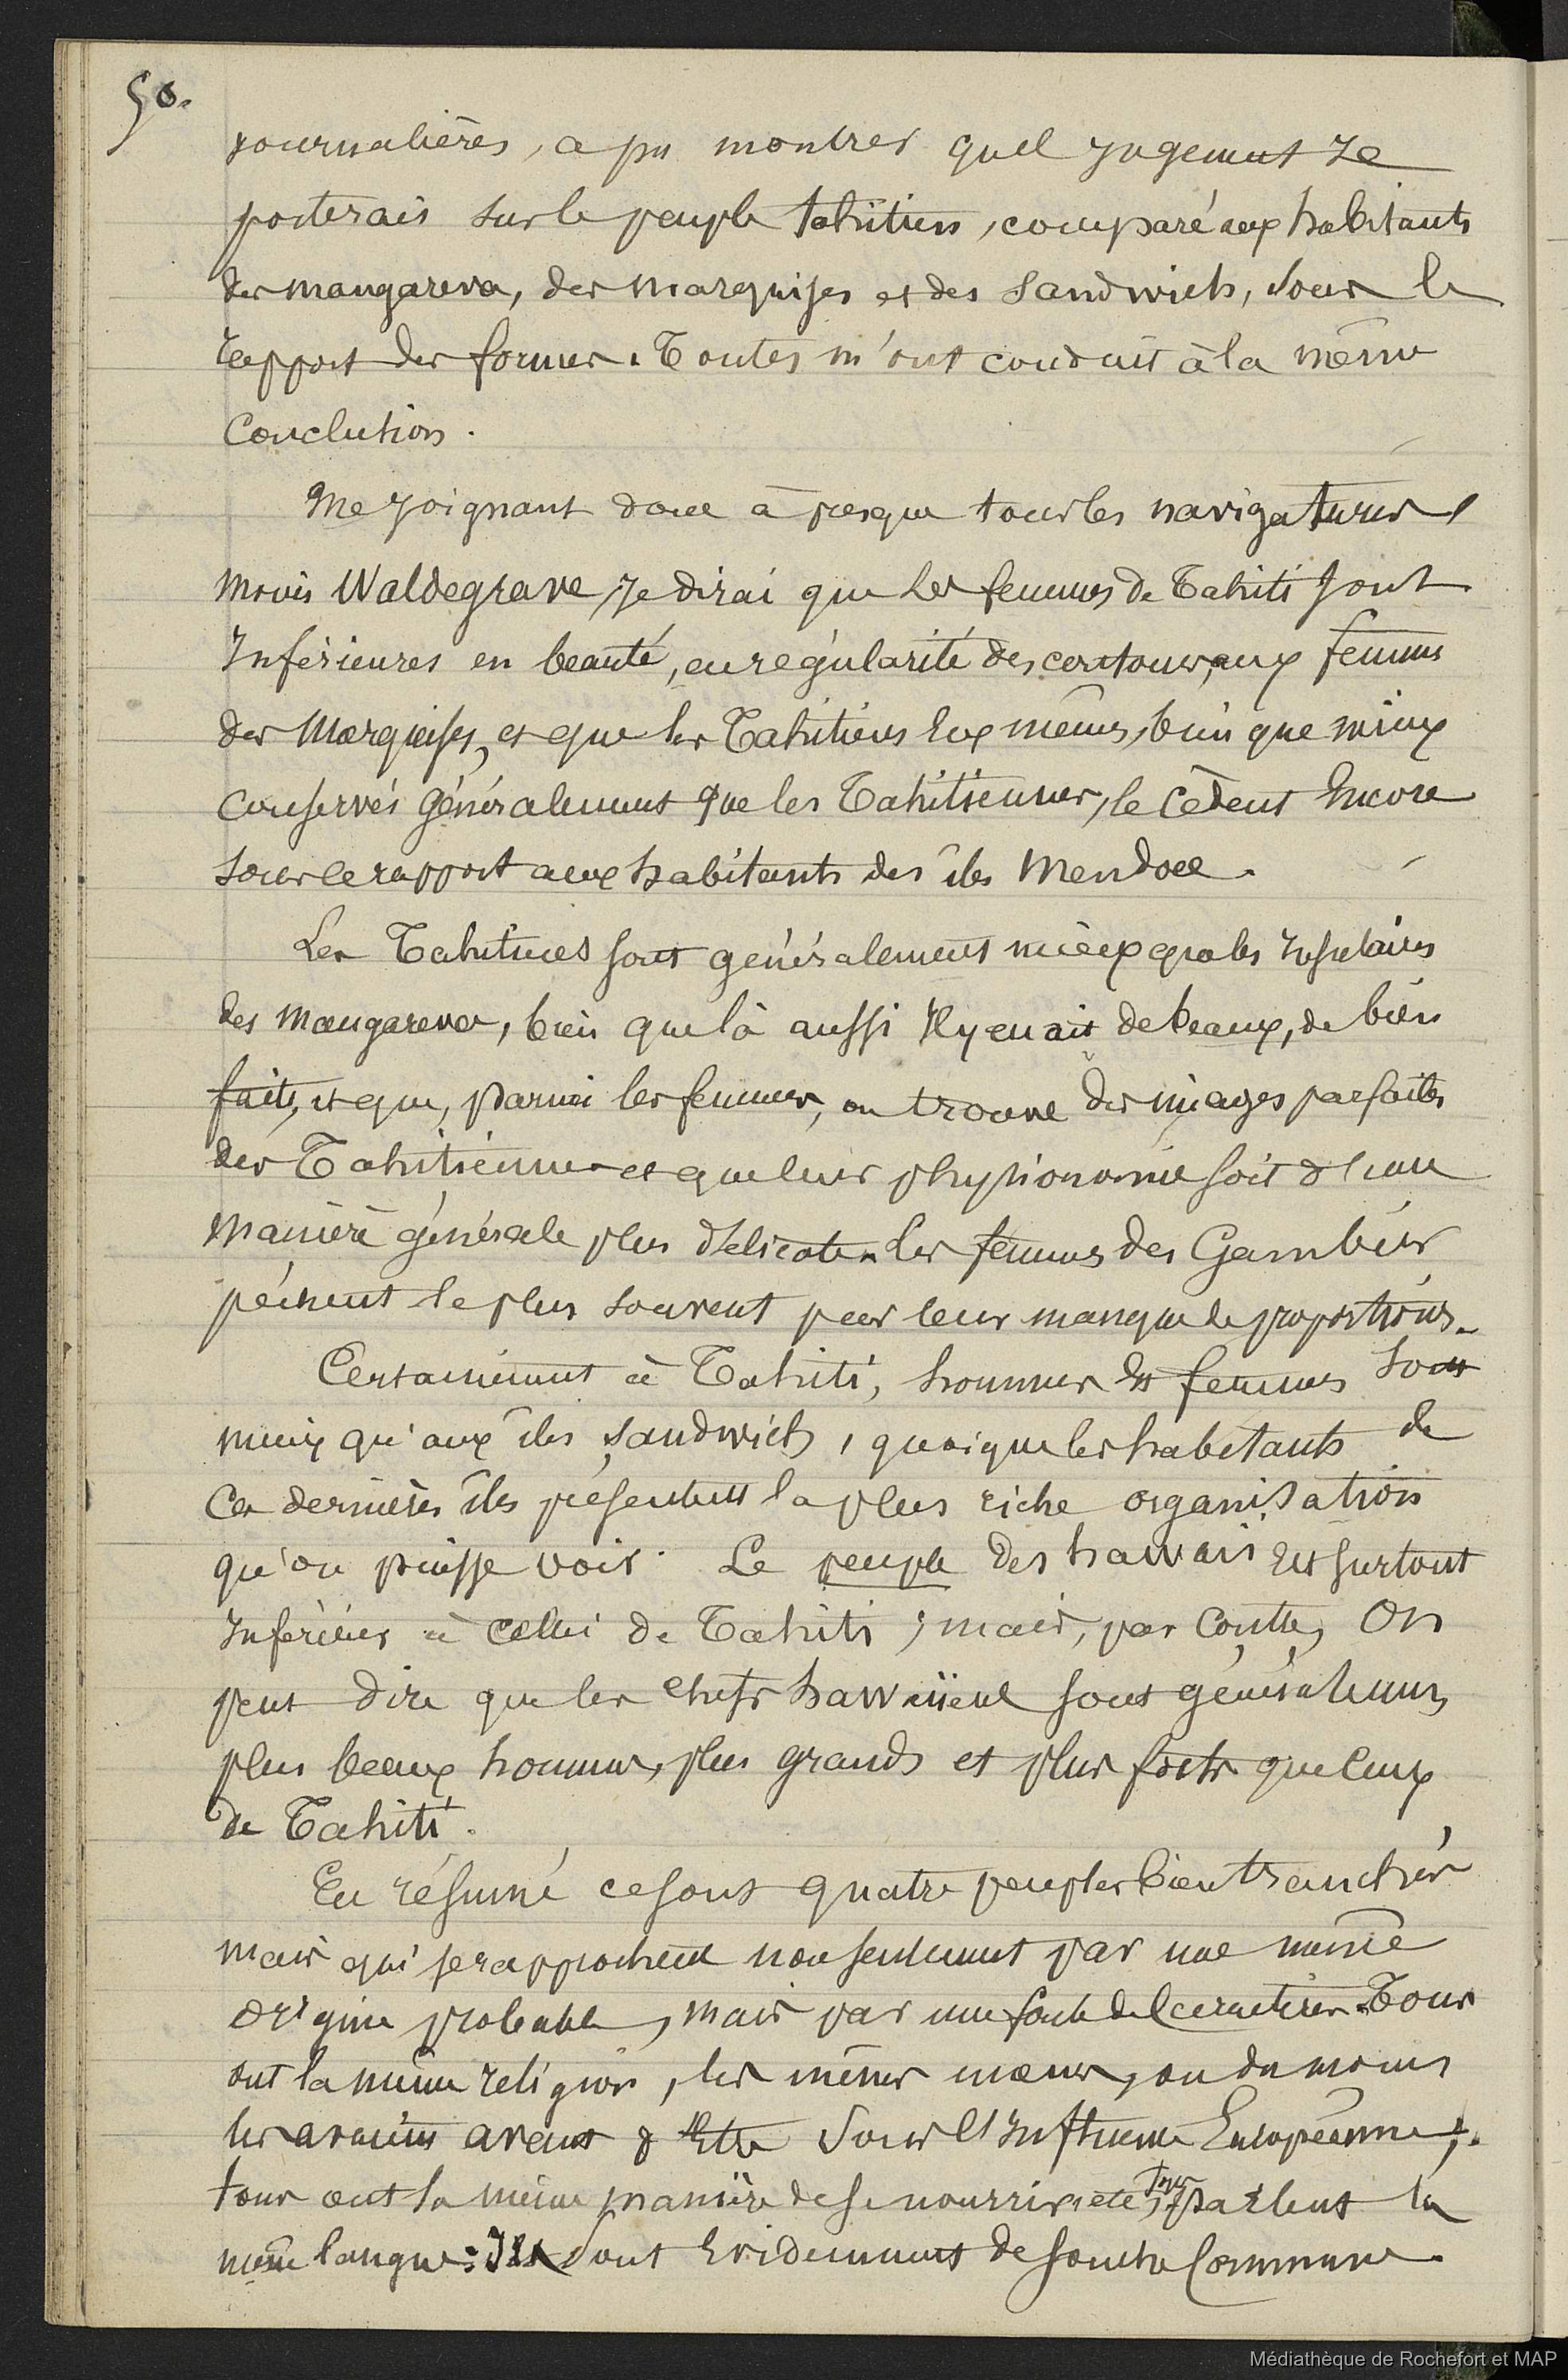 50.
journalières, a pu montrer quel jugement je
porterais sur le peuple tahitien, comparé aux habitants
des mangareva, des marquises et des Sandwich, sous le
rapport des formes. Toutes m'ont conduit à la même
Conclution.
Me joignant donc à presque tous les navigateurs,
moins Waldegrave, je dirai que les femmes de Tahiti sont
Inférieures en beauté, en régularité des contours, aux femmes
des Marquises, et que les Tahitiens Eux mêmes, bien que mieux
conservés généralement que les Tahitiennes, le cèdent Encore
sous ce rapport aux habitants des îles Mendoce.
Les Tahitiens sont généralement mieux que les Insulaires
des Mangareva, bien que là aussi Il y en ait de beaux, de bien
faits, et que, parmi les femmes, on trouve des images parfaites
des Tahitiennes et que leur physionomie soit d'une
manière générale plus délicate. Les femmes des Gambier
péchent le plus souvent par leur manque de proportions.
Certainement à Tahiti, hommes Et femmes sont
mieux qu'aux îles Sandwich, quoique les habitants de
Ces dernières îles présentent la plus riche organisation
qu'on puisse voir. Le peuple des hawaii Est surtout
Inférieur à celui de Tahiti ; mais, par contre, On
peut dire que les chefs hawaiiens sont généralement
plus beaux hommes, plus grands et plus forts que ceux
de Tahiti.
En résumé ce sont quatre peuples bien tranchés
mais qui se rapprochent non seulement par une même
origine probable, mais par une foule de Caractères. Tous
ont la même religion, les mêmes mœurs, ou du moins
les avaient avant d'Etre Sous l'Influence Européenne ;
tous ont la même manière de se nourrir, etc, Tous parlent la
même langue : Ils Sont Evidemment de souche Commune.
Médiathèque de Rochefort et MAP